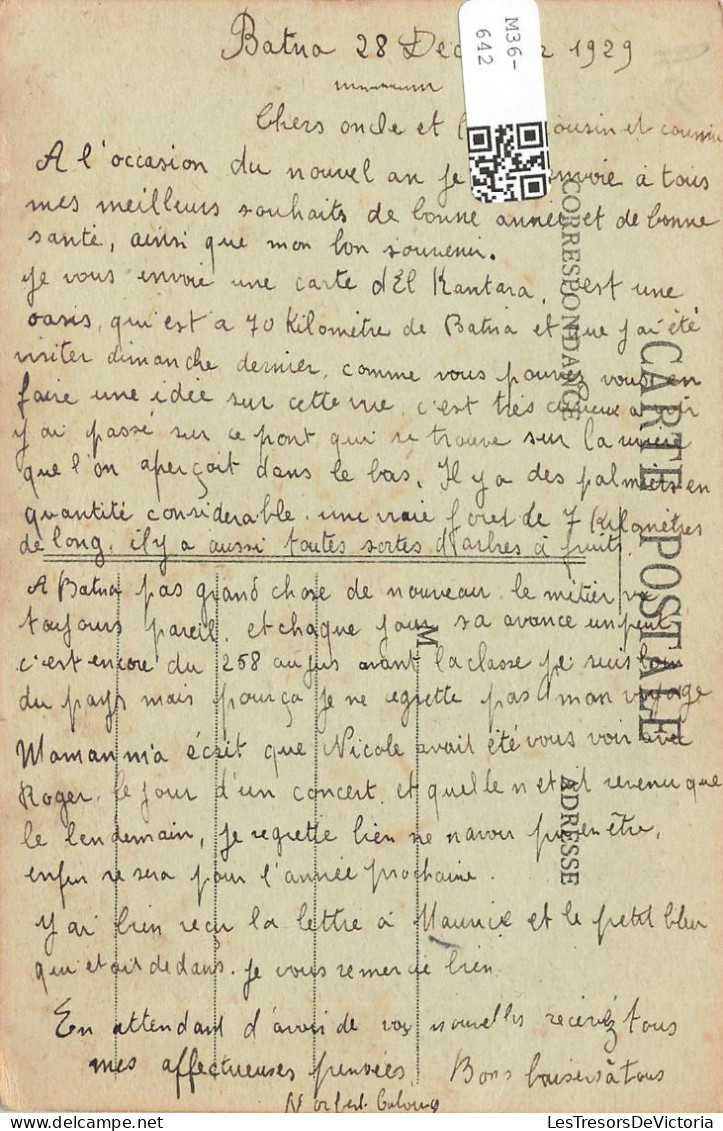 M36-
642
Batna 28 Dec 1929
Chers oncle et cousin et cousine
A l'occasion du nouvel an je envoie à tous
mes meilleurs souhaits de bonne année et de bonne
santé, ainsi que mon bon souvenir.
je vous envoie une carte d'El Kantara, c'est une
oasis, qui est a 70 Kilomètre de Batna et que j'ai été
visiter dimanche dernier, comme vous pouvez vous en
faire une idée sur cette vue, c'est très curieux a voir
j'ai passé sur ce pont qui se trouve sur la
que l'on aperçoit dans le bas. Il y a des palmiers en
quantité considerable, une vraie foret de 7 Kilomètres
de long, il y a aussi toutes sortes d'arbres à fruits.
A Batna pas grand chose de nouveau, le métier va
toujours pareil, et chaque jour sa avance un peu
c'est encore du 258 au jus avant la classe je suis loin
du pays mais pour ça je ne regrette pas mon voyage
Maman m'a écrit que Nicole avait été vous voir avec
Roger, le jour d'un concert, et quelle n etait revenu que
le lendemain, je regrette bien ne n'avoir pu en être,
enfin se sera pour l'année prochaine.
J'ai bien reçu la lettre à Maurice et le petit bleu
qui etait dedans. je vous remercie bien
En attendant d'avoir de vos nouvelles recevez tous
mes affectueuses pensées. Bons baisers à tous
CARTE POSTALE
CORRESPONDANCE
ADRESSE
M
LesTresorsDeVictoria
delcampe.net